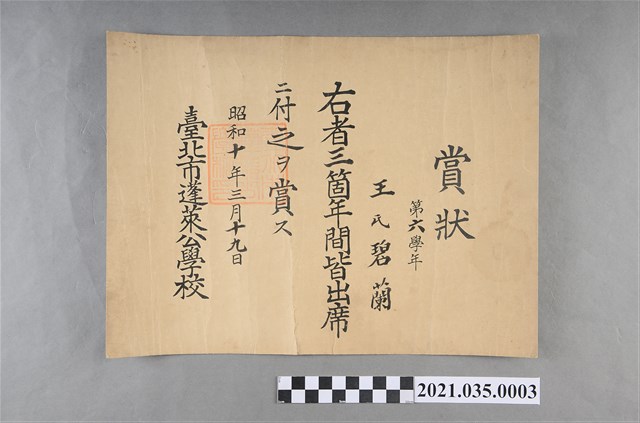 賞狀
第六學年
王氏碧蘭
右者三箇年間皆出席
ニ付之ヲ賞ス
昭和十年三月十九日
臺北市蓬萊公學校
2021.035.0003